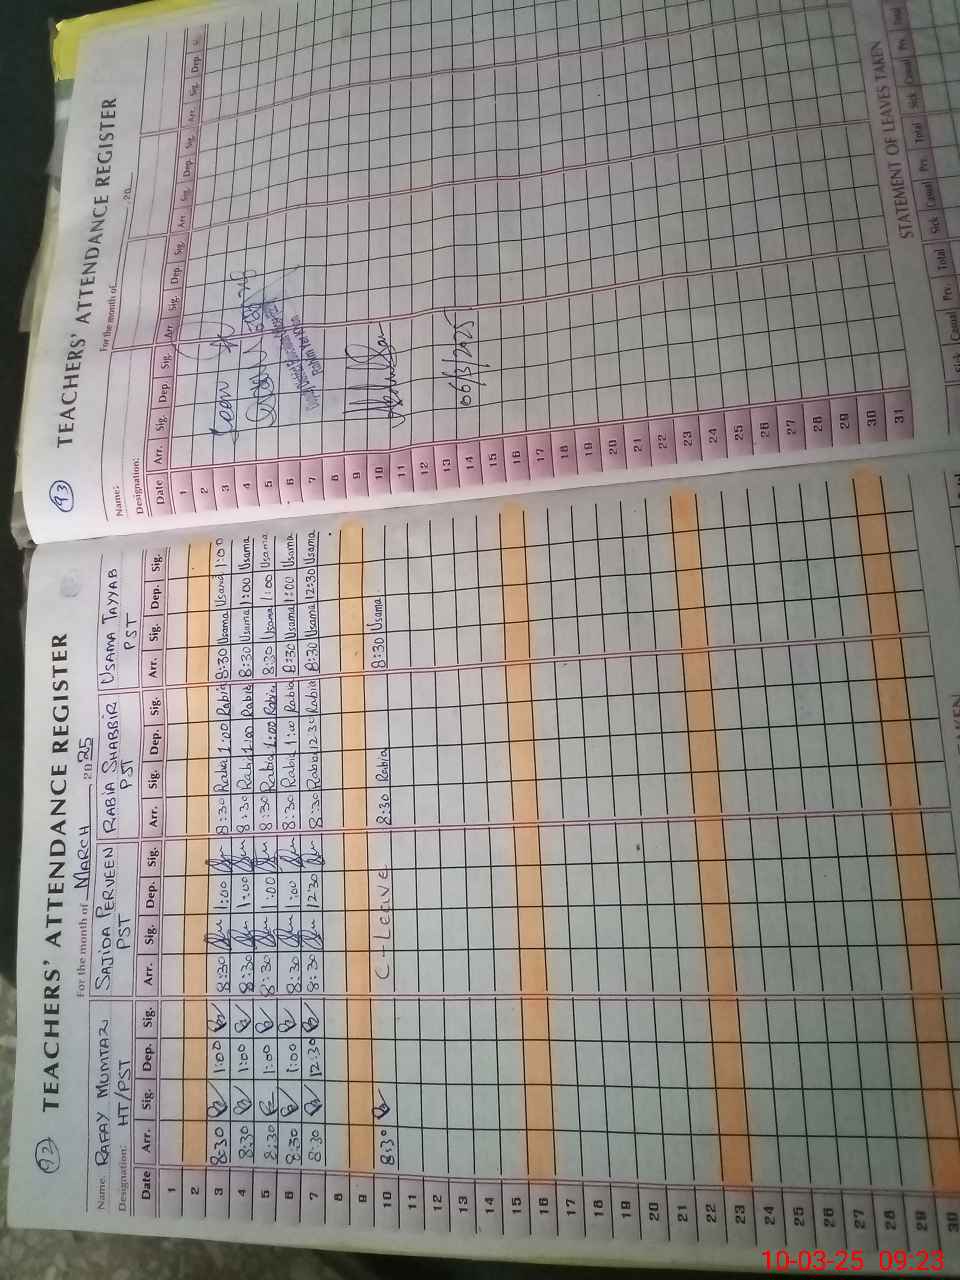 92
TEACHERS' ATTENDANCE REGISTER
For the month of MARCH 2025
Name: RAFAY MUMTAZ SAJIDA PERVEEN RABIA SHABBIR USAMA TAYYAB
Designation: HT/PST PST PST PST
Date Arr. Sig. Dep. Sig. Arr. Sig. Dep. Sig. Arr. Sig. Dep. Sig. Arr. Sig. Dep. Sig.
1
2
3 8:30 1:00 8:30 1:00 8:30 Rabia 1:00 Rabia 8:30 Usama Usama 1:00
4 8:30 1:00 8:30 1:00 8:30 Rabia 1:00 Rabia 8:30 Usama 1:00 Usama
5 8:30 1:00 8:30 1:00 8:30 Rabia 1:00 Rabia 8:30 Usama 1:00 Usama
6 8:30 1:00 8:30 1:00 8:30 Rabia 1:00 Rabia 8:30 Usama 1:00 Usama
7 8:30 12:30 8:30 12:30 8:30 Rabia 12:30 Rabia 8:30 Usama 12:30 Usama
8
9
10 8:30 C-Leave 8:30 Rabia 8:30 Usama
11
12
13
14
15
16
17
18
19
20
21
22
23
24
25
26
27
28
29
30
93
TEACHERS' ATTENDANCE REGISTER
For the month of 20
Name:
Designation:
Date Arr. Sig. Dep. Sig. Arr. Sig. Dep. Sig. Arr. Sig. Dep. Sig. Arr. Sig. Dep. S
1
2
3
4
5
6
7
8
9
10
11
12
13
14 06/3/2025
15
16
17
18
19
20
21
22
23
24
25
26
27
28
29
30
31
STATEMENT OF LEAVES TAKEN
Sick Casual Prv. Total Sick Casual Prv. Total Sick Casual Prv. Total
10-03-25 09:23